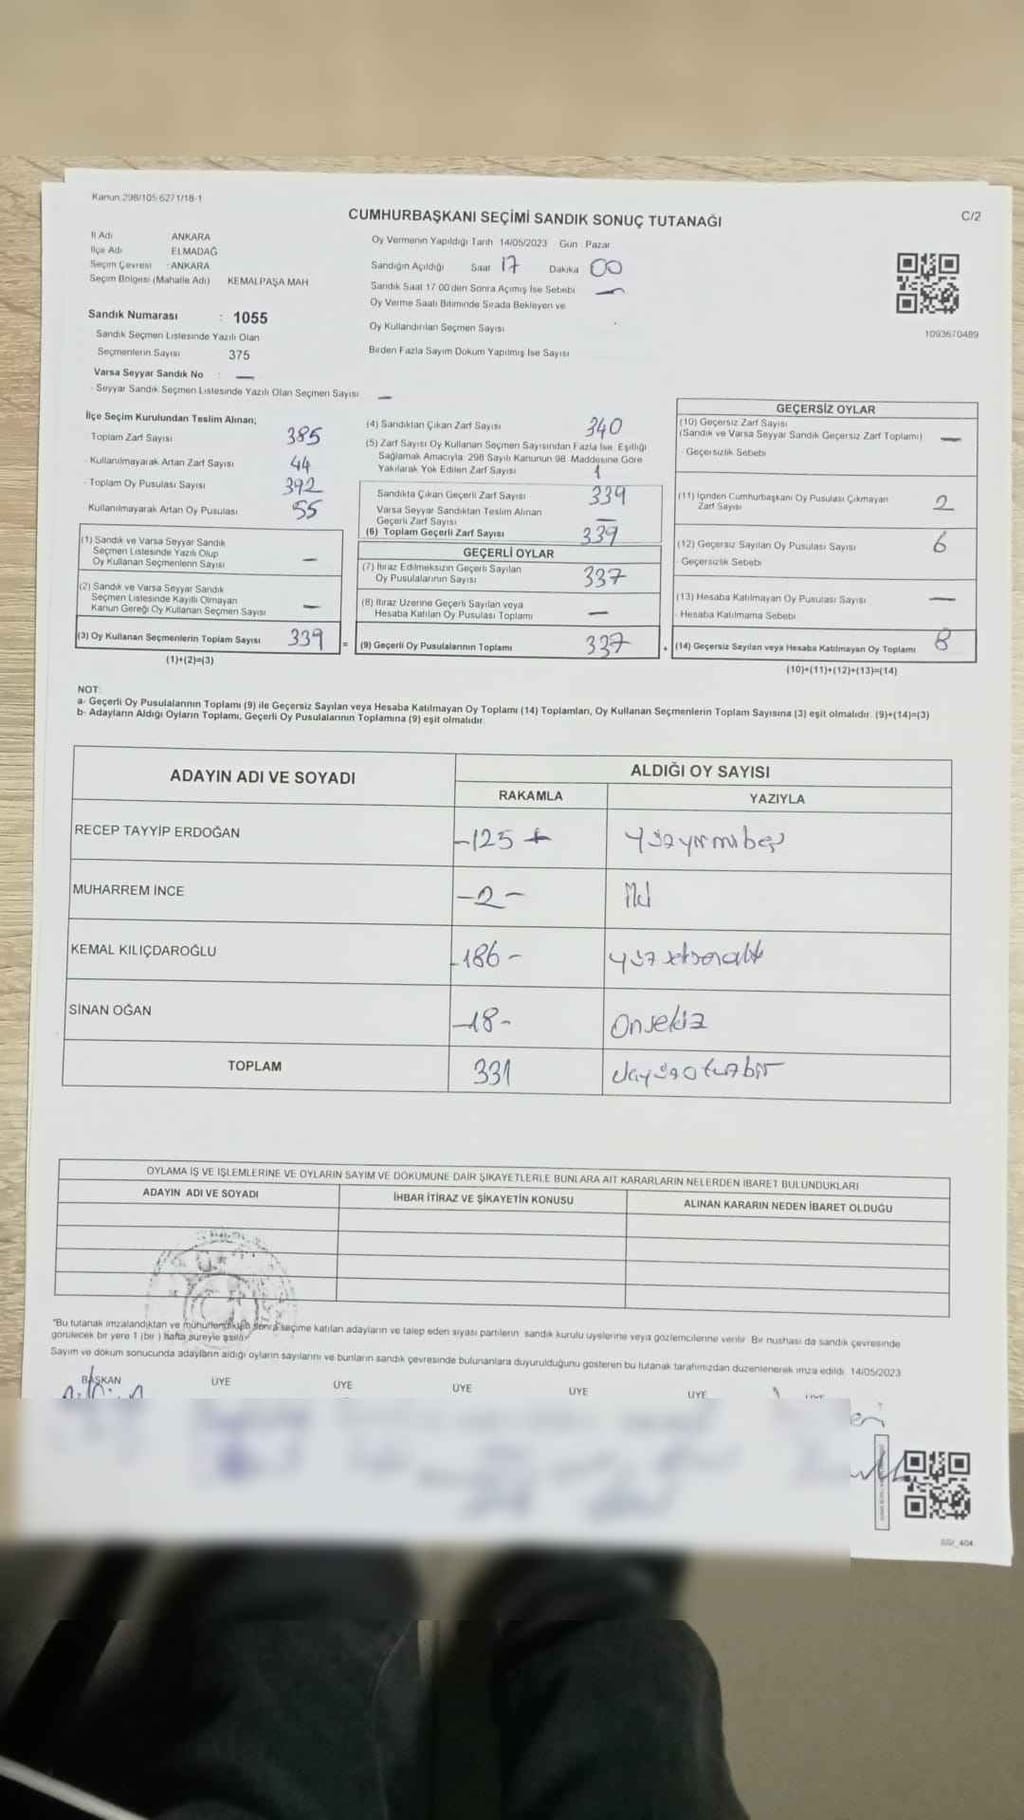 Kanun 298/105-6271/18-1
CUMHURBAŞKANI SEÇİMİ SANDIK SONUÇ TUTANAĞI
C/2
İl Adı ANKARA
İlçe Adı ELMADAĞ
Seçim Çevresi : ANKARA
Seçim Bölgesi (Mahalle Adı) KEMALPAŞA MAH
Sandık Numarası : 1055
Sandık Seçmen Listesinde Yazılı Olan
Seçmenlerin Sayısı 375
Varsa Seyyar Sandık No : —
- Seyyar Sandık Seçmen Listesinde Yazılı Olan Seçmen Sayısı —
Oy Vermenin Yapıldığı Tarih 14/05/2023 Gün : Pazar
Sandığın Açıldığı Saat 17 Dakika 00
Sandık Saat 17 00'den Sonra Açımış İse Sebebi —
Oy Verme Saati Bitiminde Sırada Bekleyen ve
Oy Kullandırılan Seçmen Sayısı
Birden Fazla Sayım Döküm Yapılmış İse Sayısı
1093670489
İlçe Seçim Kurulundan Teslim Alınan;
Toplam Zarf Sayısı 385
- Kullanılmayarak Artan Zarf Sayısı 44
- Toplam Oy Pusulası Sayısı 392
Kullanılmayarak Artan Oy Pusulası 55
(1) Sandık ve Varsa Seyyar Sandık
Seçmen Listesinde Yazılı Olup
Oy Kullanan Seçmenlerin Sayısı —
(2) Sandık ve Varsa Seyyar Sandık
Seçmen Listesinde Kayıtlı Olmayan
Kanun Gereği Oy Kullanan Seçmen Sayısı —
(3) Oy Kullanan Seçmenlerin Toplam Sayısı 339 =
(1)+(2)=(3)
(4) Sandıktan Çıkan Zarf Sayısı 340
(5) Zarf Sayısı Oy Kullanan Seçmen Sayısından Fazla İse, Eşitliği
Sağlamak Amacıyla 298 Sayılı Kanunun 98. Maddesine Göre
Yakılarak Yok Edilen Zarf Sayısı 1
Sandıkta Çıkan Geçerli Zarf Sayısı 339
Varsa Seyyar Sandıktan Teslim Alınan
Geçerli Zarf Sayısı —
(6) Toplam Geçerli Zarf Sayısı 339
GEÇERLİ OYLAR
(7) İtiraz Edilmeksizin Geçerli Sayılan
Oy Pusulalarının Sayısı 337
(8) İtiraz Üzerine Geçerli Sayılan veya
Hesaba Katılan Oy Pusulası Toplamı —
(9) Geçerli Oy Pusulalarının Toplamı 337 +
GEÇERSİZ OYLAR
(10) Geçersiz Zarf Sayısı
(Sandık ve Varsa Seyyar Sandık Geçersiz Zarf Toplamı) —
- Geçersizlik Sebebi
(11) İçinden Cumhurbaşkanı Oy Pusulası Çıkmayan
Zarf Sayısı 2
(12) Geçersiz Sayılan Oy Pusulası Sayısı 6
Geçersizlik Sebebi
(13) Hesaba Katılmayan Oy Pusulası Sayısı —
Hesaba Katılmama Sebebi
(14) Geçersiz Sayılan veya Hesaba Katılmayan Oy Toplamı 8
(10)+(11)+(12)+(13)=(14)
NOT:
a- Geçerli Oy Pusulalarının Toplamı (9) ile Geçersiz Sayılan veya Hesaba Katılmayan Oy Toplamı (14) Toplamları, Oy Kullanan Seçmenlerin Toplam Sayısına (3) eşit olmalıdır. (9)+(14)=(3)
b- Adayların Aldığı Oyların Toplamı, Geçerli Oy Pusulalarının Toplamına (9) eşit olmalıdır
ADAYIN ADI VE SOYADI
ALDIĞI OY SAYISI
RAKAMLA YAZIYLA
RECEP TAYYİP ERDOĞAN -125 + yüzyirmibeş
MUHARREM İNCE -2- İki
KEMAL KILIÇDAROĞLU -186- yüz seksenaltı
SİNAN OĞAN -18- Onsekiz
TOPLAM 331 üçyüzotuzbir
OYLAMA İŞ VE İŞLEMLERİNE VE OYLARIN SAYIM VE DÖKÜMÜNE DAİR ŞİKAYETLERLE BUNLARA AİT KARARLARIN NELERDEN İBARET BULUNDUKLARI
ADAYIN ADI VE SOYADI İHBAR İTİRAZ VE ŞİKAYETİN KONUSU ALINAN KARARIN NEDEN İBARET OLDUĞU
"Bu tutanak imzalandıktan ve mühürlendikten sonra seçime katılan adayların ve talep eden siyasi partilerin sandık kurulu üyelerine veya gözlemcilerine verilir. Bir nüshası da sandık çevresinde
görülecek bir yere 1 (bir ) hafta süreyle asılır."
Sayım ve döküm sonucunda adayların aldığı oyların sayılarını ve bunların sandık çevresinde bulunanlara duyurulduğunu gösteren bu tutanak tarafımızdan düzenlenerek imza edildi. 14/05/2023
BAŞKAN ÜYE ÜYE ÜYE ÜYE ÜYE